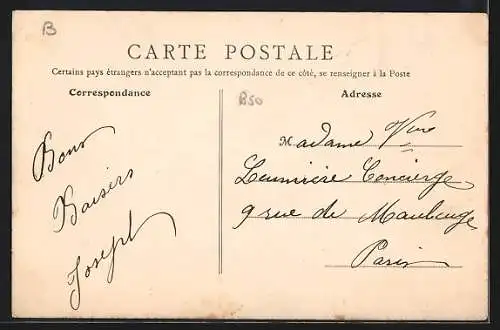 B
CARTE POSTALE
Certains pays étrangers n'acceptant pas la correspondance de ce côté, se renseigner à la Poste
Correspondance
Adresse
B50
Bons
Baisers
Joseph
Madame Vve
Concierge
9 rue de Maubeuge
Paris